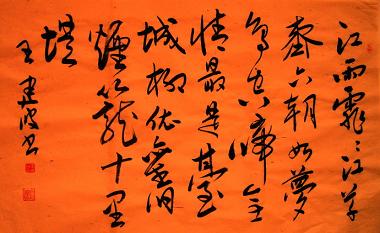 江雨霏〻江草
齊六朝如夢
鳥空啼無
情最是臺
城柳依舊
煙籠十里
堤
王建波书